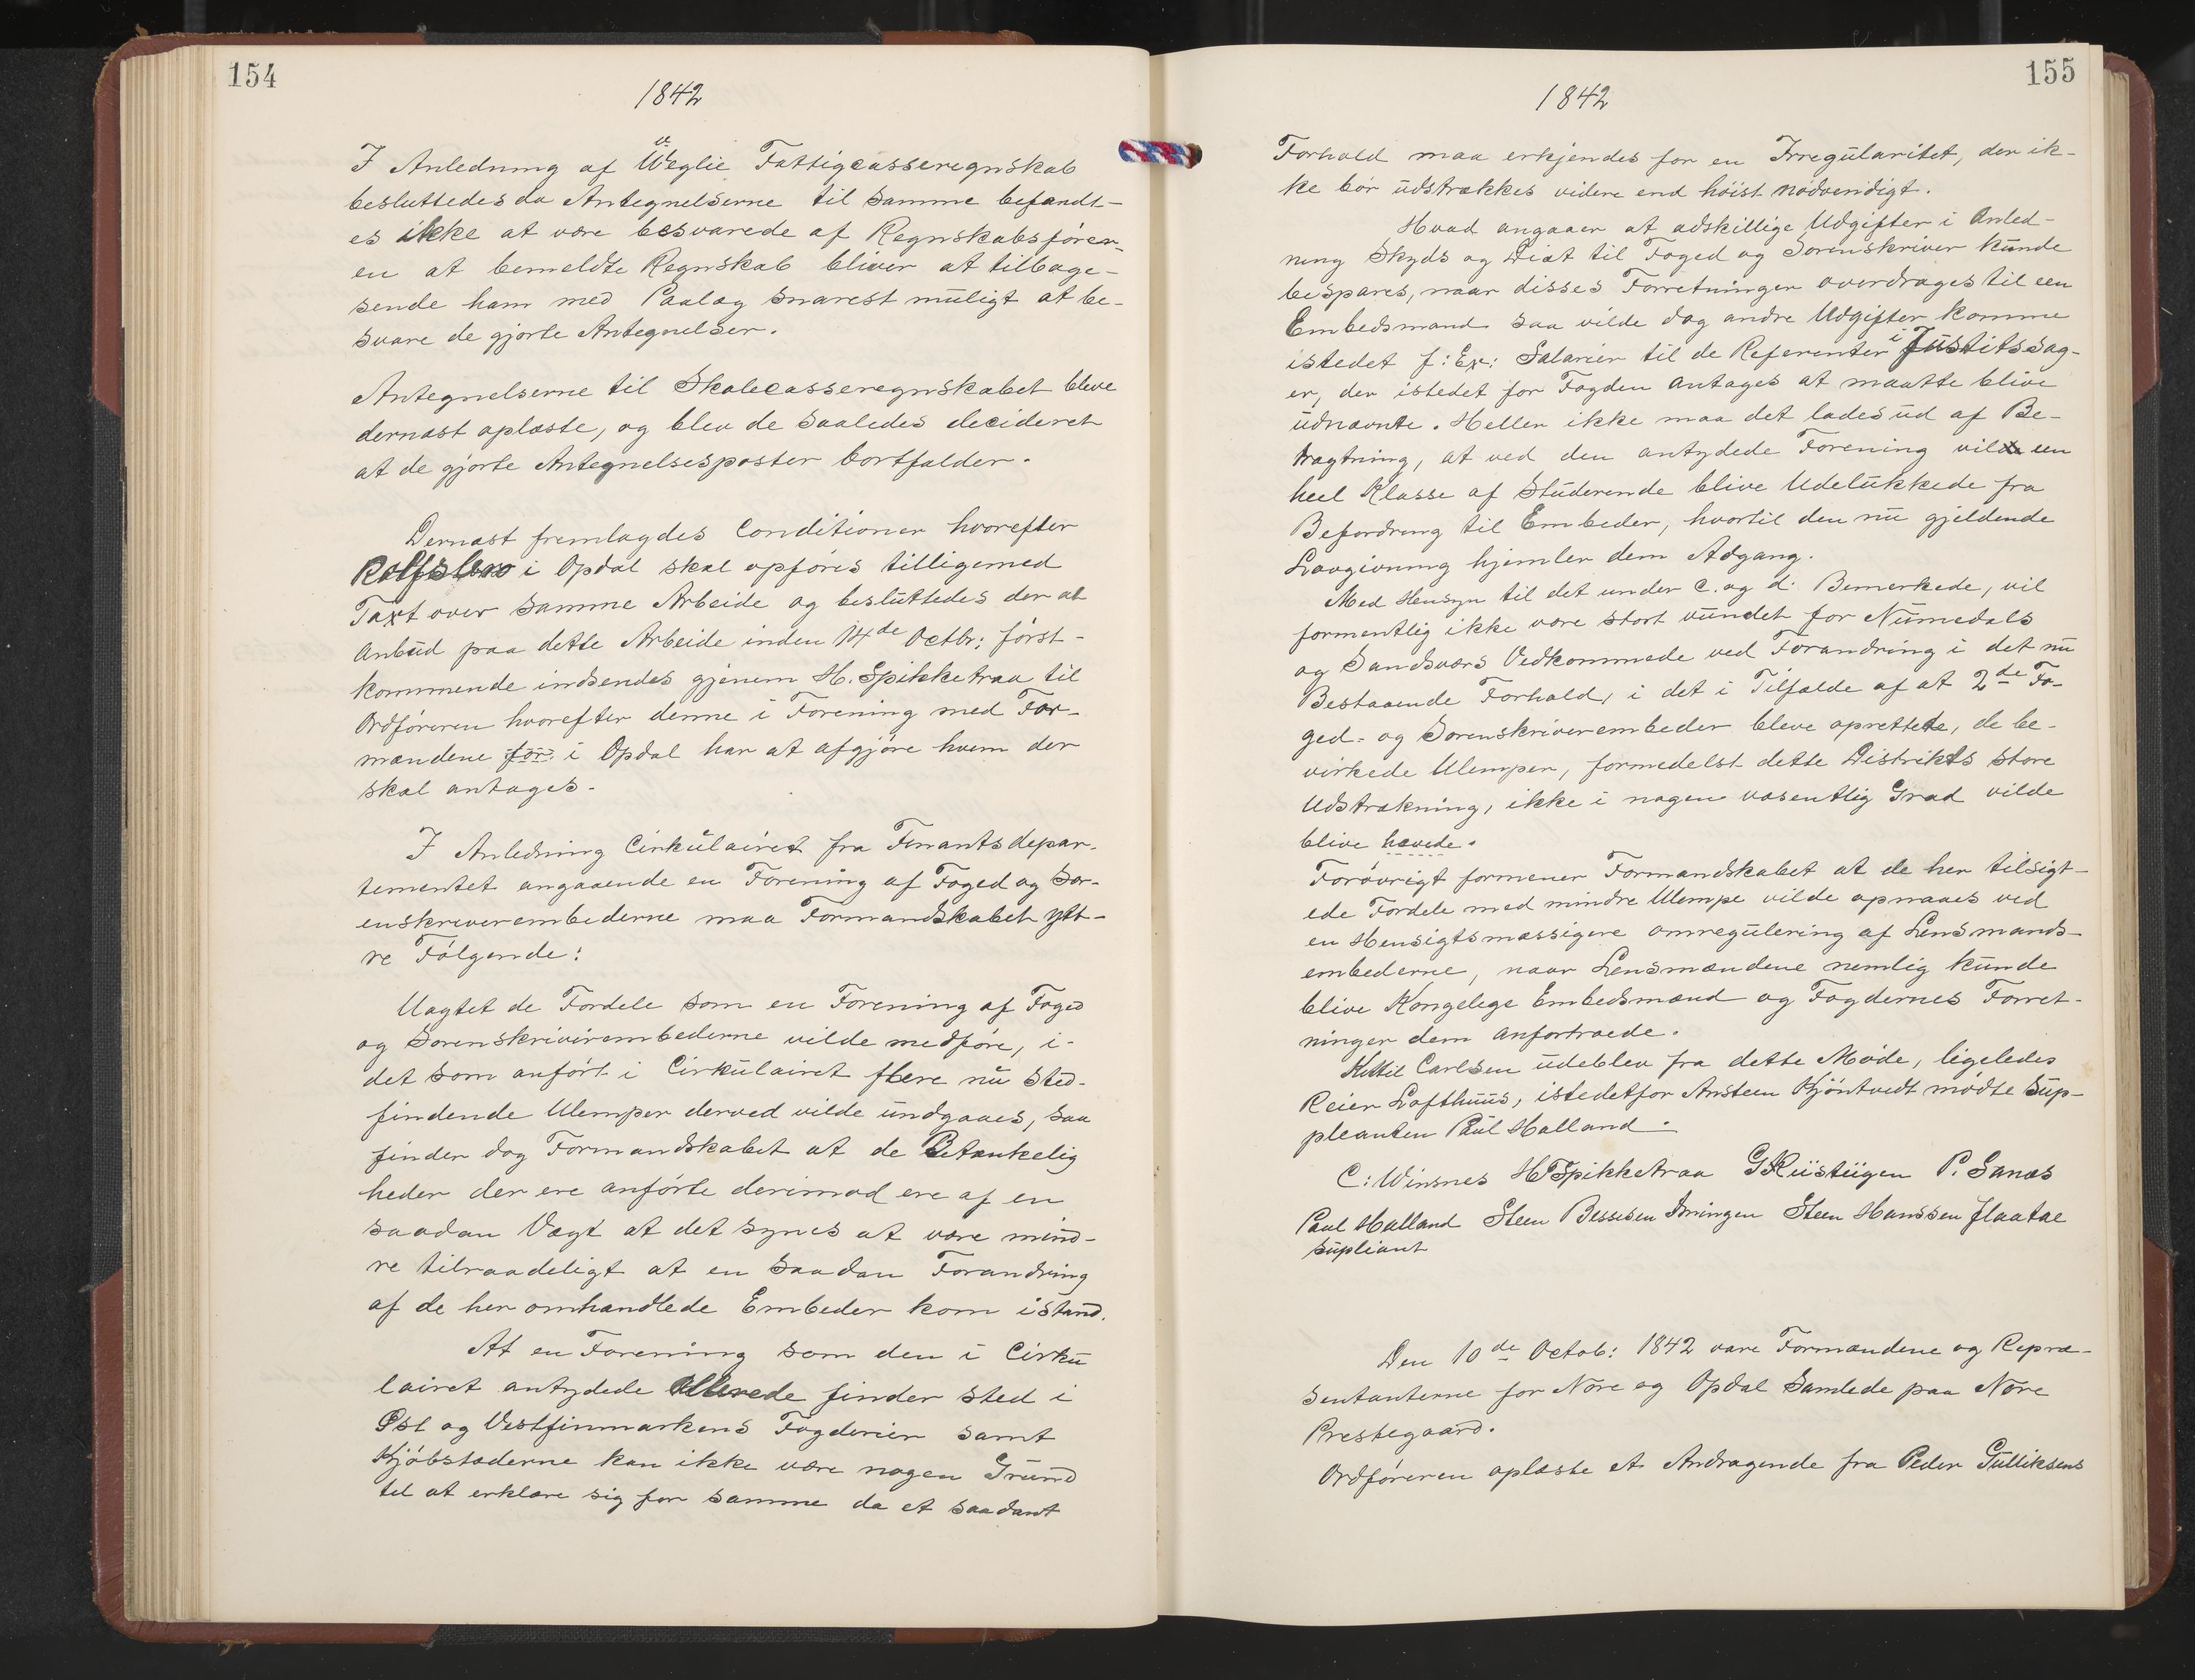 154
1842
I Anledning af Weglie Fattigcasseregnskab
besluttedes da Antegnelserne til samme befandt-
es ikke at være besvarede af Regnskabsförer-
en at bemeldte Regnskab bliver at tilbage-
sende ham med Paalæg snarest muligt at be-
svare de gjorte Antegnelser.
Antegnelserne til Skolecasseregnskabet bleve
dernæst oplæste, og blev de saaledes decideret
at de gjorte Antegnelsesposter bortfalder.
Dernæst fremlagdes Conditioner hvorefter
Rolfsbro i Opdal skal opföres tilligemed
Taxt over samme Arbeide og besluttedes der at
Anbud paa dette Arbeide inden 14de Octbr: först-
kommende indsendes gjenem H. Spikketraa til
Ordföreren hvorefter denne i Forening med For-
mændene for i Opdal har at afgjöre hvem der
skal antages.
I Anledning Cirkulairet fra Finantsdepar-
tementet angaaende en Forening af Foged og Sor-
enskriverembederne maa Formandskabet ytt-
re Fölgende:
Uagtet de Fordele som en Forening af Foged
og Sorenskriverembederne vilde medföre, i-
det som anfört i Cirkulairet flere nu sted-
findende Ulemper derved vilde undgaaes, saa
finder dog Formandskabet at de Betænkelig
heder der ere anförte derimod ere af en
saadan Vægt at det synes at være mind-
re tilraadeligt at en saadan Forandring
af de her omhandlede Embeder kom istand.
At en Forening som den i Cirku
lairet antydede allerede finder sted i
Öst og Vestfinmarkens Fogderier samt
Kjöbstæderne kan ikke være nogen Grund
til at erklære sig for samme da et saadant
155
1842
Forhold maa erkjendes for en Irregularitet, der ik-
ke bör udstrækkes videre end höist nödvendigt.
Hvad angaaer at adskillige Udgifter i Anled-
ning Skyds og Diæt til Foged og Sorenskriver kunde
bespares, naar disses Forretninger overdrages til een
Embedsmand saa vilde dog andre Udgifter komme
istedet f: Ex: Salarier til de Referenter i Justitssag-
er, der istedet for Fogden antages at maatte blive
udnævnte. Heller ikke maa det lades ud af Be-
tragtning, at ved den antydede Forening vil een
heel Klasse af Studerende blive Udelukkede fra
Befordring til Embeder, hvortil den nu gjeldende
Lovgivning hjemler dem Adgang.
Med Hensyn til det under C. og d: Bemerkede, vil
formentlig ikke være stort vundet for Numedals
og Sandsværs Vedkommede ved Forandring i det nu
Bestaaende Forhold, i det i Tilfælde af at 2de Fo-
ged- og Sorenskriverembeder bleve oprettede, de be-
virkede Ulemper, formedelst dette Distrikts store
Udstrækning, ikke i nogen væsentlig Grad vilde
blive hævede.
Forövrigt formener Formandskabet at de her tilsigt-
ede Fordele med mindre Ulempe vilde opnaaes ved
en Hensigtsmæssigere omregulering af Lensmands-
embederne, naar Lensmændene nemlig kunde
blive Kongelege Embedsmænd og Fogdernes Forret-
ninger dem anfortroede.
Kittil Carlsen udeblev fra dette Möde, ligeledes
Reier Lofthuus, istedetfor Ansteen Kjöntvedt mödte Sup-
pleanten Paul Halland.
C: Winsnes HTSpikketraa GRüstügen P. Sanæs
Paul Halland Steen Bessesen Steen Hanssen Flaatae
supliant
Den 10de Octob: 1842 vare Formændene og Repræ-
sentanterne for Nore og Opdal Samlede paa Nore
Prestegaard.
Ordföreren oplæste et Andragende fra Peder Gulliksens